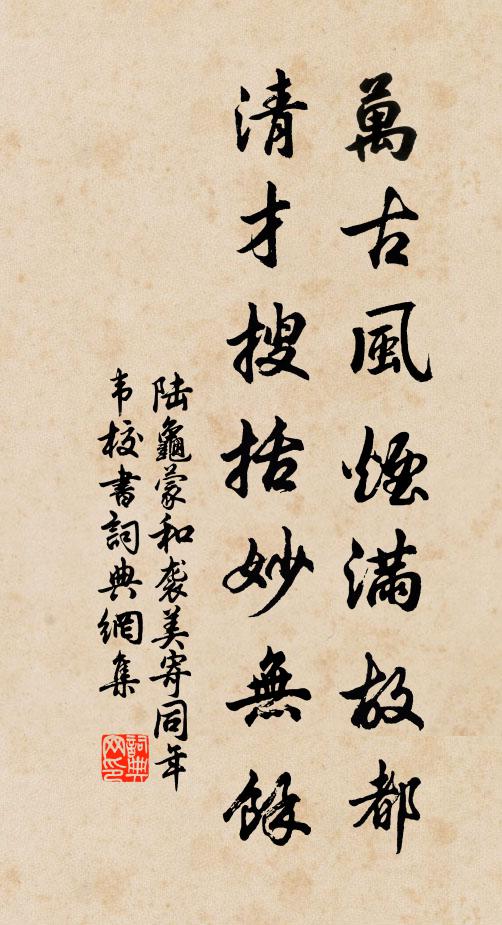 萬古風煙滿故都
清才搜括妙無餘
陆龜蒙和袭美寄同年
韦校書詞典網集
詞典网印